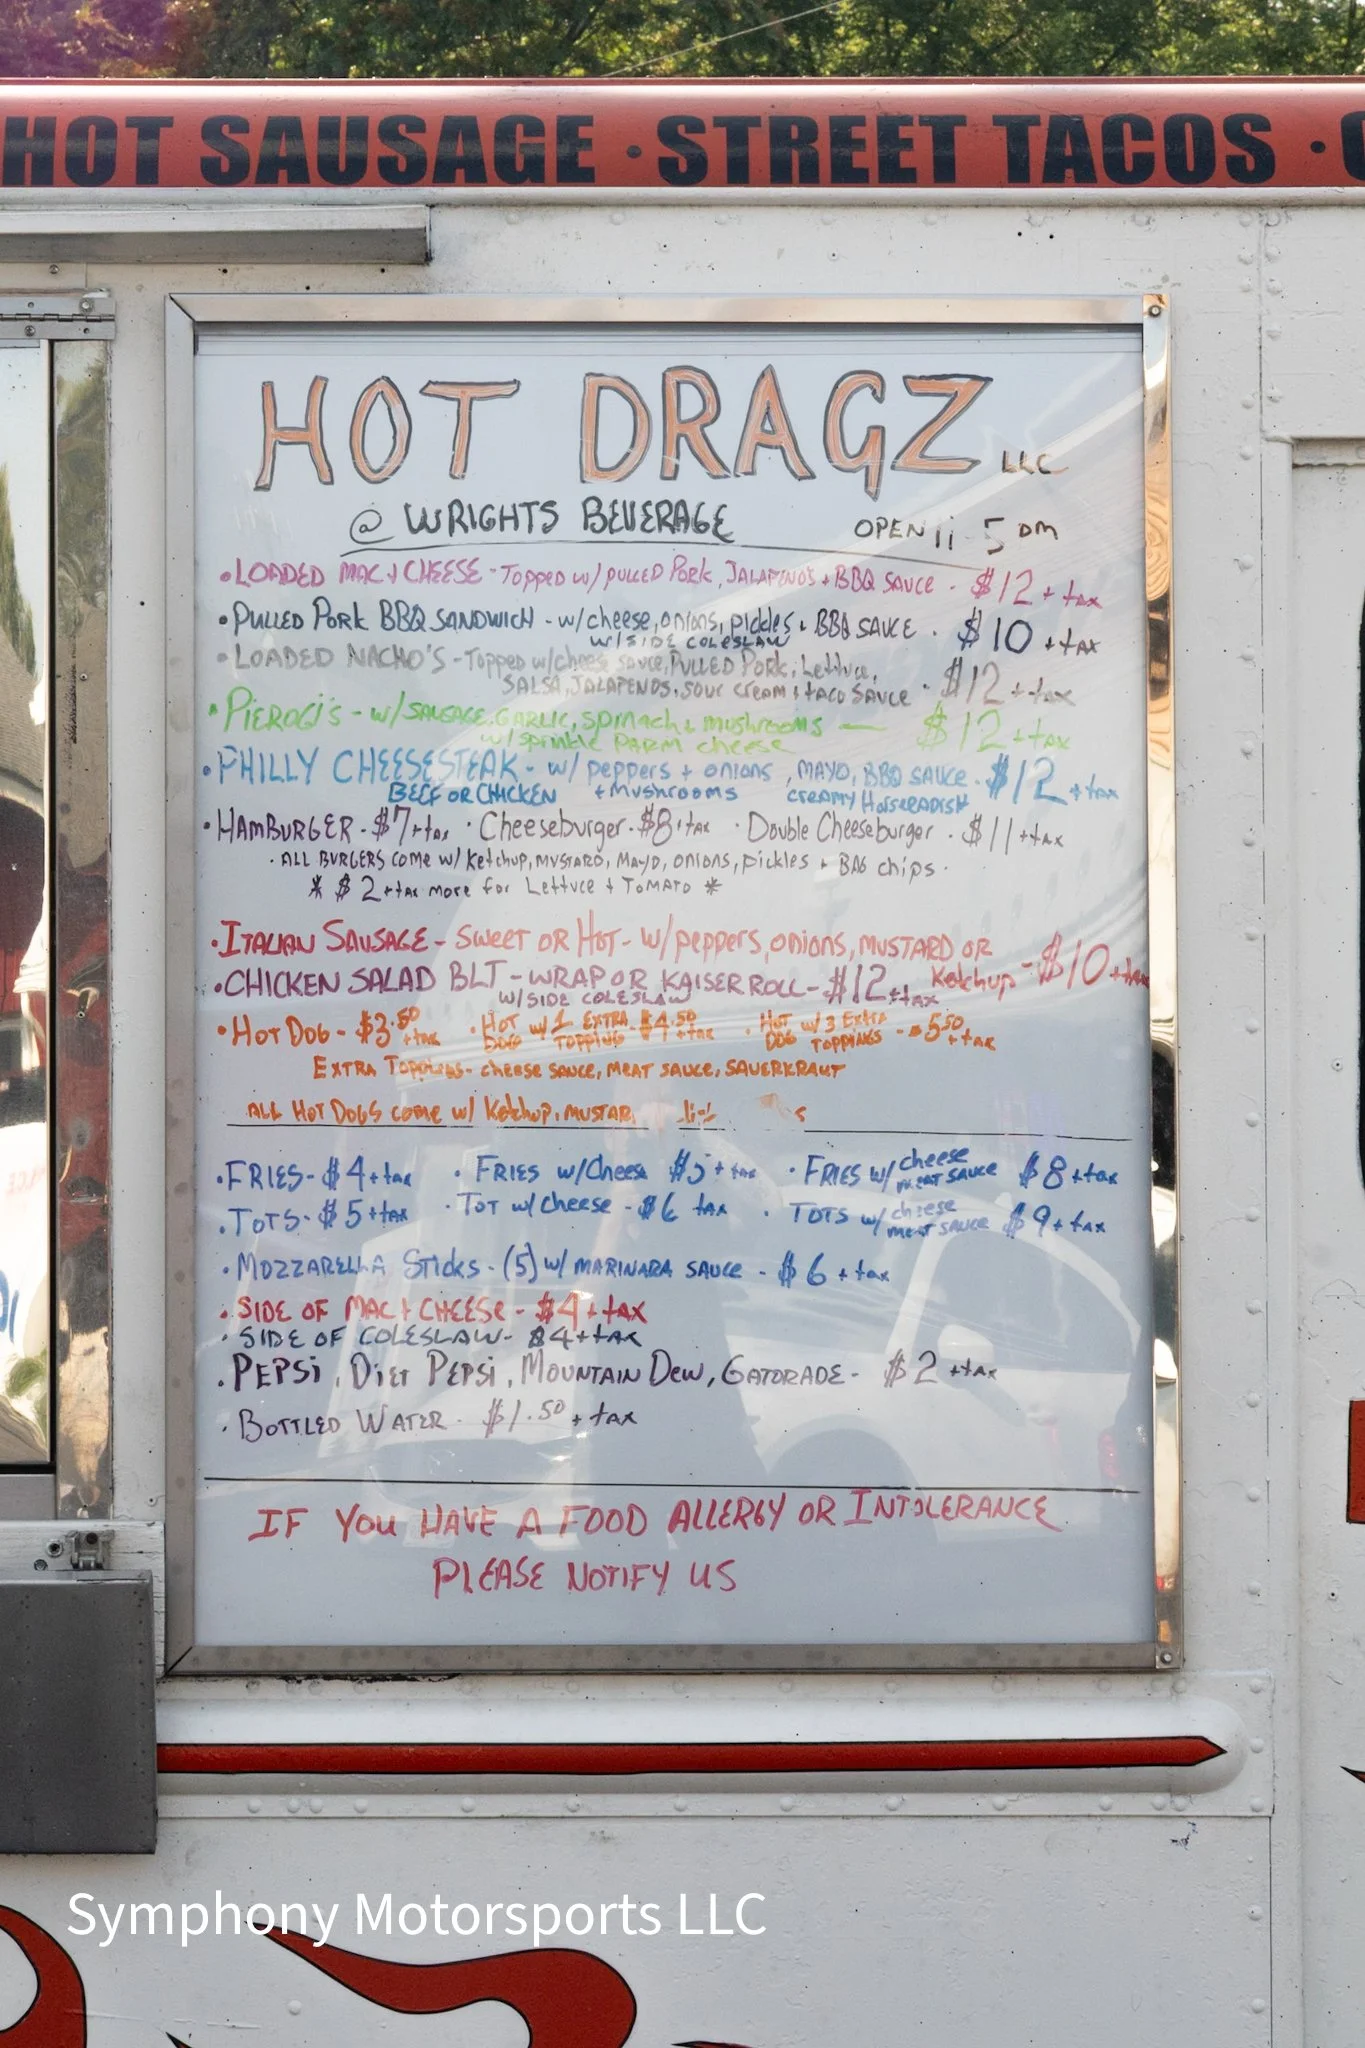 HOT SAUSAGE · STREET TACOS ·
HOT DRAGZ LLC
@ WRIGHTS BEVERAGE OPEN 11-5 pm
• LOADED MAC + CHEESE - Topped w/ PULLED PORK, JALAPENO'S + BBQ SAUCE - $12 + tax
• PULLED PORK BBQ SANDWICH - w/ cheese, onions, pickles + BBQ SAUCE - $10 + tax
W/ SIDE COLESLAW
• LOADED NACHO'S - Topped w/ cheese sauce, PULLED PORK, Lettuce,
SALSA, JALAPENOS, SOUR CREAM + TACO SAUCE - $12 + tax
• PIEROGI'S - w/ SAUSAGE, GARLIC, spinach + mushrooms — $12 + tax
w/ sprinkle PARM cheese
• PHILLY CHEESESTEAK - w/ peppers + onions, MAYO, BBQ SAUCE - $12 + tax
BEEF OR CHICKEN + Mushrooms CREAMY HORSERADISH
• HAMBURGER - $7 + tax · Cheeseburger - $8 + tax · Double Cheeseburger - $11 + tax
· ALL BURGERS COME W/ Ketchup, MUSTARD, MAYO, onions, pickles + BAG chips ·
* $2 + tax more for Lettuce + TOMATO *
· ITALIAN SAUSAGE - SWEET OR HOT - W/ peppers, onions, MUSTARD OR
Ketchup - $10 + tax
• CHICKEN SALAD BLT - WRAP OR KAISER ROLL - $12 + tax
W/ SIDE COLESLAW
• HOT DOG - $3.50 + tax · HOT DOG w/ 1 EXTRA TOPPING - $4.50 + tax · HOT DOG w/ 3 EXTRA TOPPINGS - $5.50 + tax
EXTRA TOPPINGS - cheese SAUCE, MEAT SAUCE, SAUERKRAUT
ALL HOT DOGS COME w/ Ketchup, MUSTAR
• FRIES - $4 + tax · FRIES w/ Cheese $5 + tax · FRIES w/ cheese meat sauce $8 + tax
• TOTS - $5 + tax · TOT w/ cheese - $6 tax · TOTS w/ cheese meat sauce $9 + tax
· MOZZARELLA Sticks - (5) w/ MARINARA SAUCE - $6 + tax
• SIDE OF MAC + CHEESE - $4 + tax
· SIDE OF COLESLAW - $4 + tax
· PEPSi, DIET PEPSi, MOUNTAIN DEW, GATORADE - $2 + tax
· BOTTLED WATER - $1.50 + tax
IF YOU HAVE A FOOD ALLERGY OR INTOLERANCE
PLEASE NOTIFY US
Symphony Motorsports LLC